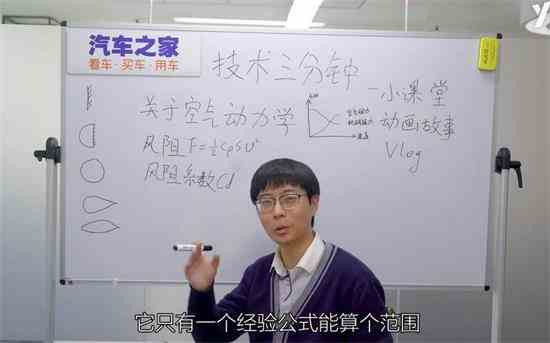 汽车之家
看车·买车·用车
技术三分钟
一小课堂
动画故事
Vlog
关于空气动力学
风阻F=½CρSv²
风阻系数Cd
它只有一个经验公式能算个范围